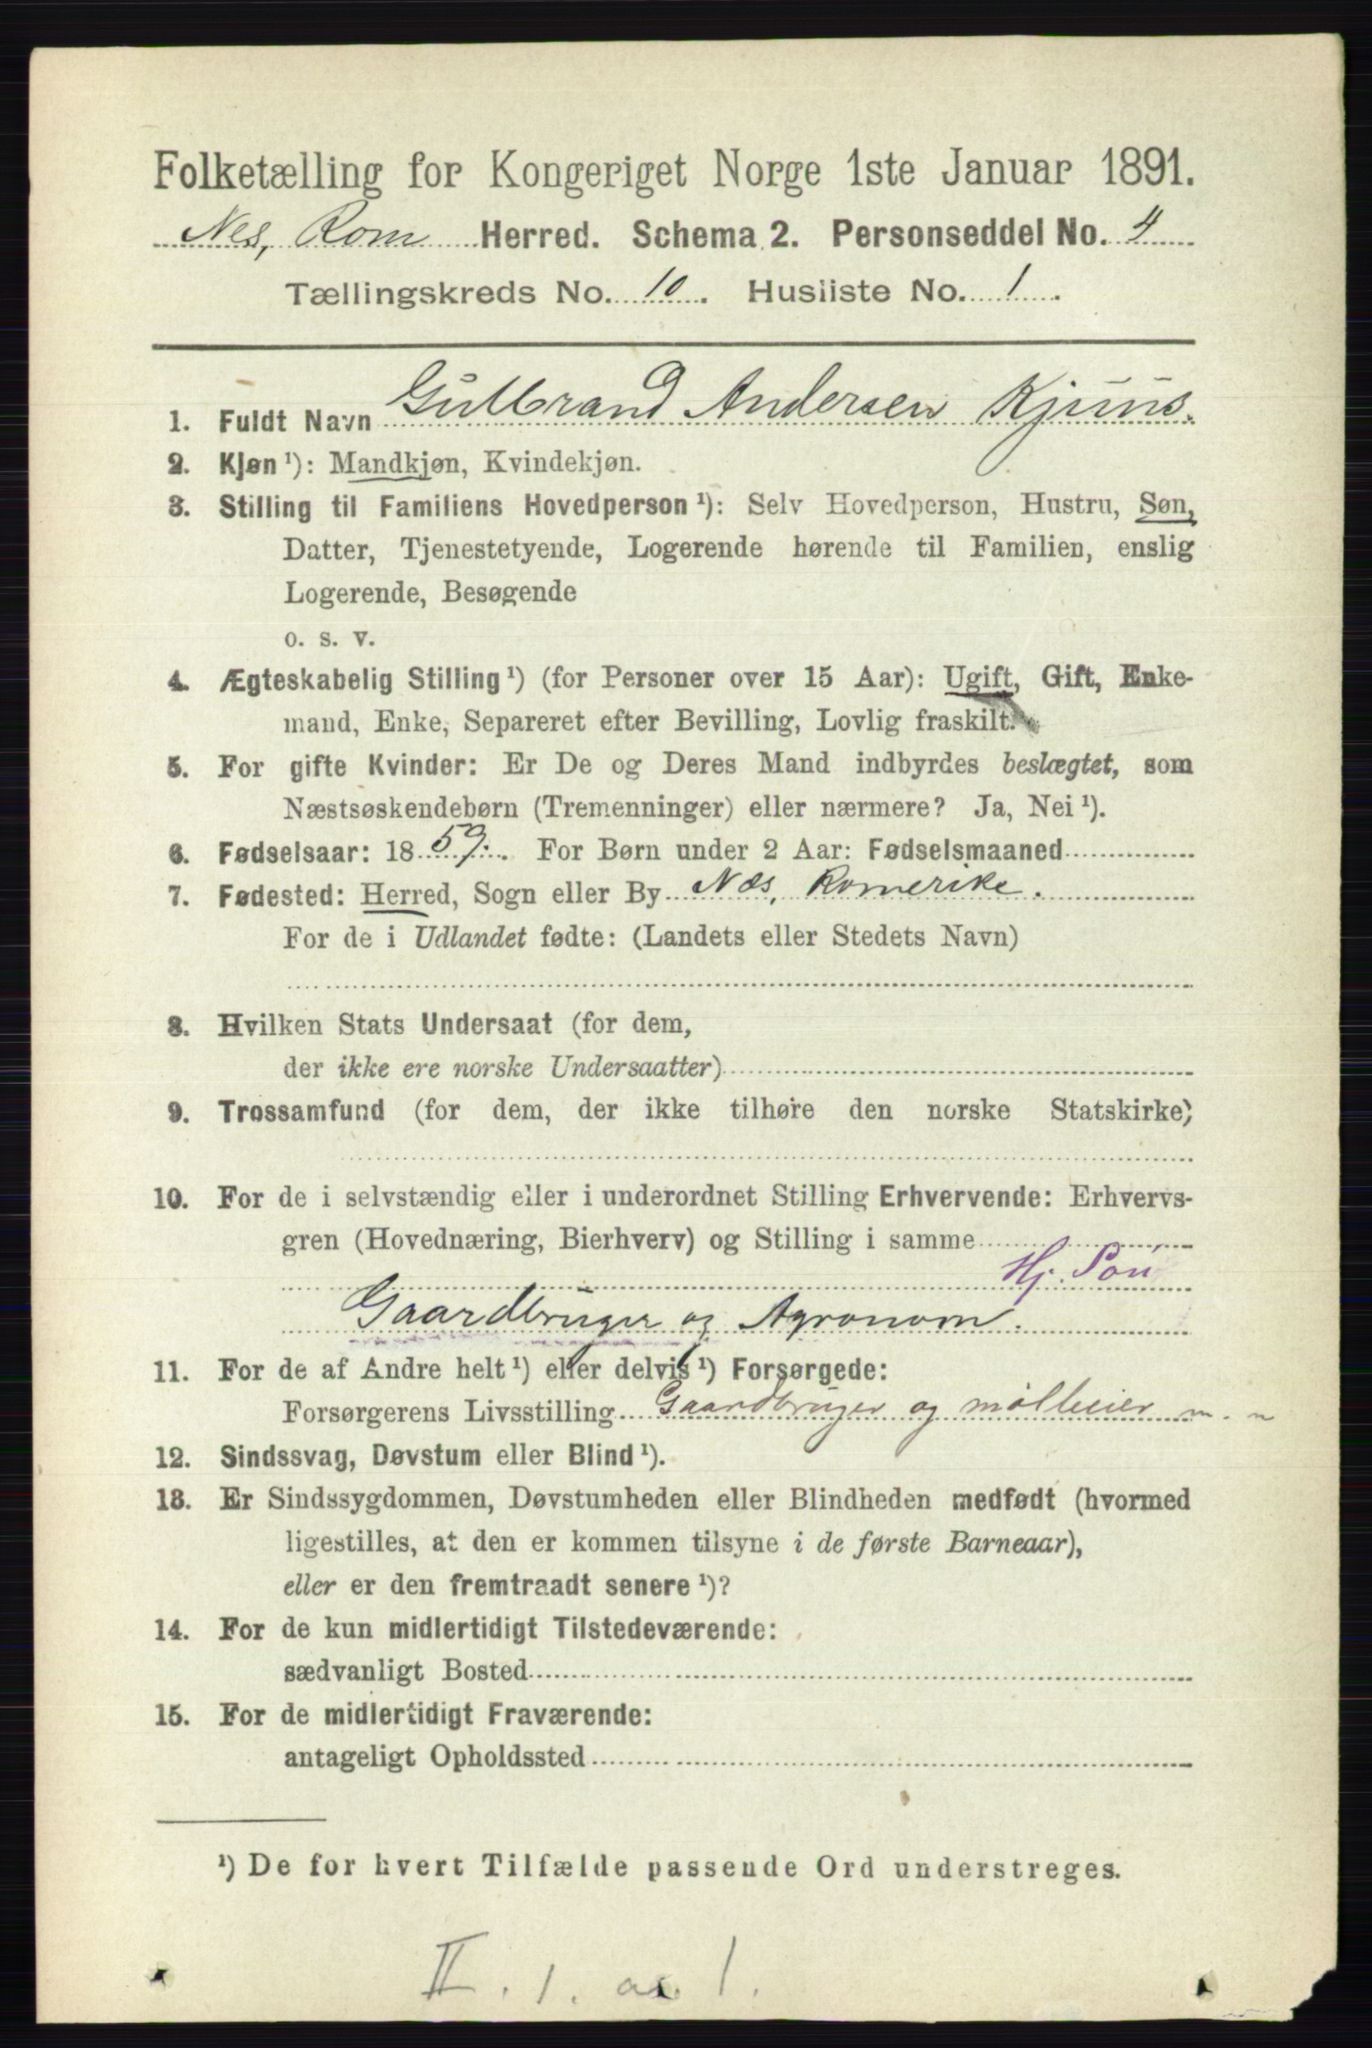 Folketælling for Kongeriget Norge 1ste Januar 1891.
Nes, Rom Herred. Schema 2. Personseddel No. 4
Tællingskreds No. 10. Husliste No. 1.
1. Fuldt Navn Gulbrand Andersen Kjuus.
2. Kjøn ¹): Mandkjøn, Kvindekjøn.
3. Stilling til Familiens Hovedperson ¹): Selv Hovedperson, Hustru, Søn,
Datter, Tjenestetyende, Logerende hørende til Familien, enslig
Logerende, Besøgende
o. s. v.
4. Ægteskabelig Stilling ¹) (for Personer over 15 Aar): Ugift, Gift, Enke-
mand, Enke, Separeret efter Bevilling, Lovlig fraskilt.
5. For gifte Kvinder: Er De og Deres Mand indbyrdes beslægtet, som
Næstsøskendebørn (Tremenninger) eller nærmere? Ja, Nei ¹).
6. Fødselsaar: 1859. For Børn under 2 Aar: Fødselsmaaned
7. Fødested: Herred, Sogn eller By Næs, Romerike.
For de i Udlandet fødte: (Landets eller Stedets Navn)
8. Hvilken Stats Undersaat (for dem,
der ikke ere norske Undersaatter)
9. Trossamfund (for dem, der ikke tilhøre den norske Statskirke)
10. For de i selvstændig eller i underordnet Stilling Erhvervende: Erhvervs-
gren (Hovednæring, Bierhverv) og Stilling i samme
Hj. Søn
Gaardbruger og Agronom.
11. For de af Andre helt ¹) eller delvis ¹) Forsørgede:
Forsørgerens Livsstilling Gaardbruger og mølleeier m. m
12. Sindssvag, Døvstum eller Blind ¹).
13. Er Sindssygdommen, Døvstumheden eller Blindheden medfødt (hvormed
ligestilles, at den er kommen tilsyne i de første Barneaar),
eller er den fremtraadt senere ¹)?
14. For de kun midlertidigt Tilstedeværende:
sædvanligt Bosted
15. For de midlertidigt Fraværende:
antageligt Opholdssted
¹) De for hvert Tilfælde passende Ord understreges.
II. 1. a. 1.